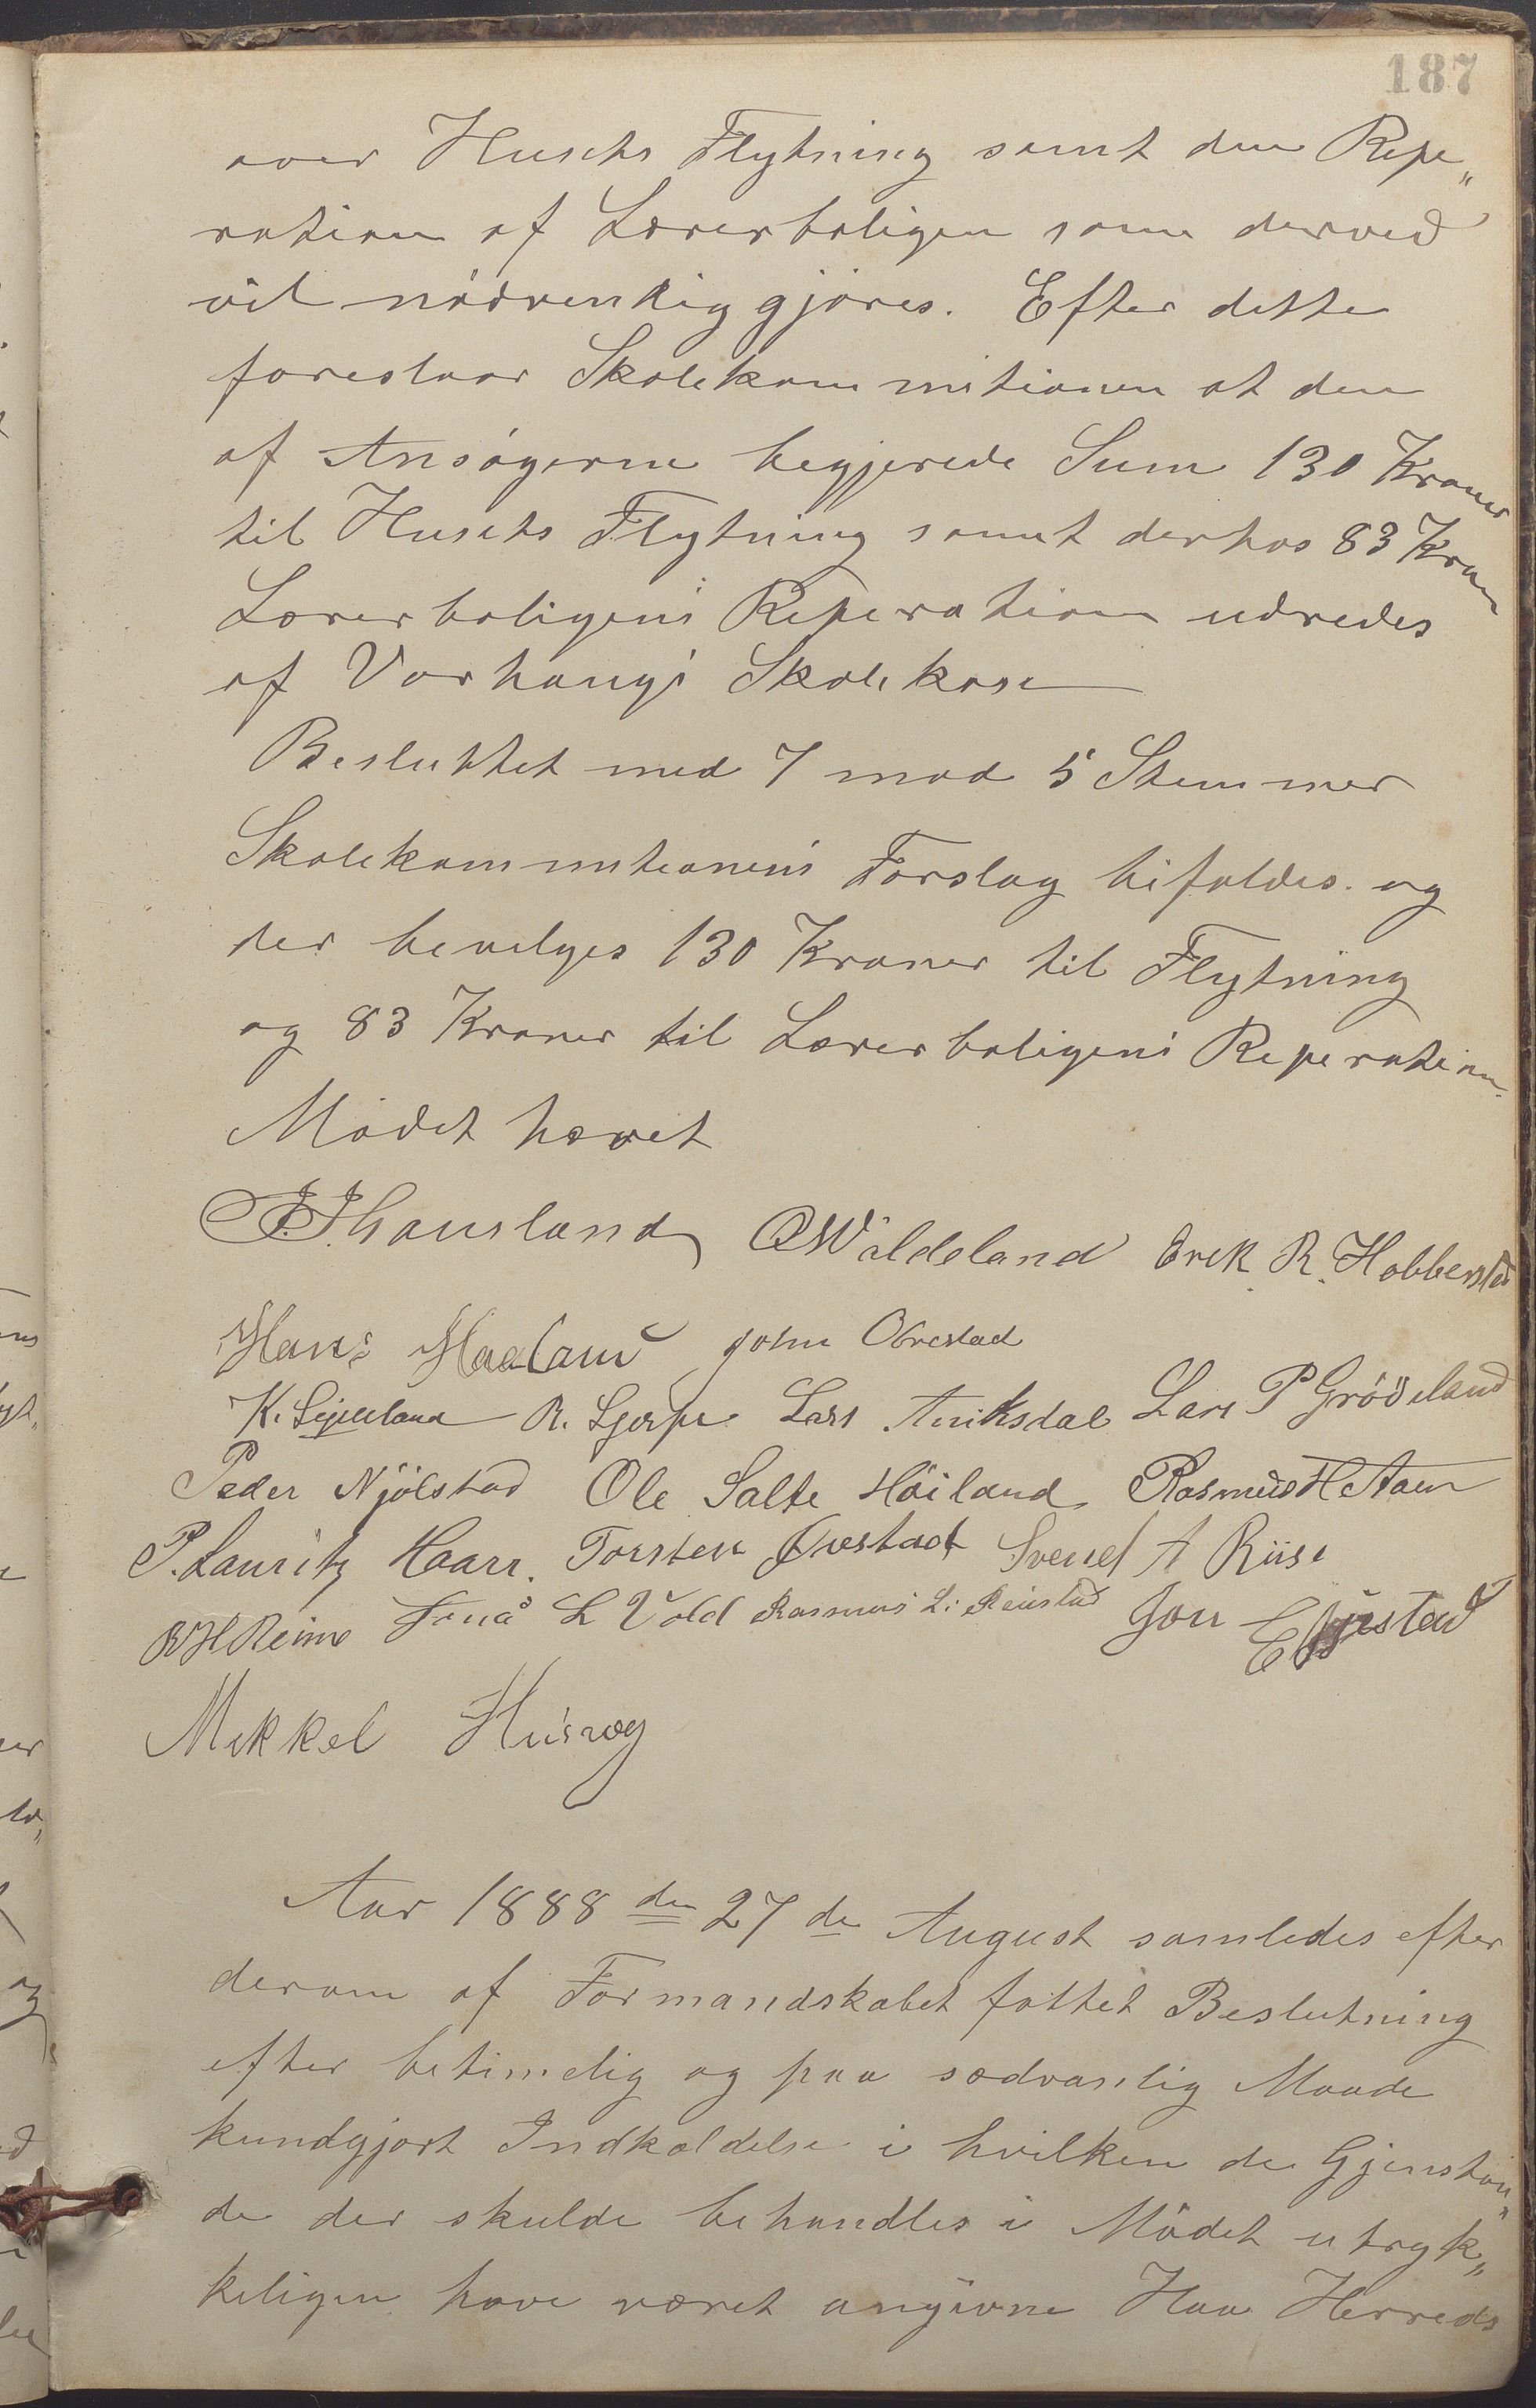 187
over Husets Flytning samt den Repe„
ration af Lærerboligen som derved
vil nödvendiggjöres. Efter dette
foreslaar Skolekommitionen at den
af Ansögerne begjerede Sum 130 Kroner
til Husets Flytning samt derhos 83 Kroner
Lærerboligens Reperation udredes
af Varhaugs Skolekase
Besluttet med 7 mod 5 Stemmer
Skolekommitionens Forslag bifaldes. og
der bevilges 130 Kroner til Flytning
og 83 Kroner til Lærerboligens Reperation.
Mödet hævet
Erek R. Hobberstad
Hans Haaland John Obrestad
R. Ljerpe Lars Aniksdal Lars P Grödeland
Peder Njölstad Ole Salte Höiland Rasmus H Aam
P. Lauritz Haarr. Torsten Qvestad Svend A Riise
R H Reime L Vold Rasmus L: Reiestad Jon
Mikkel Husvæg
Aar 1888 den 27de August samledes efter
derom af Formandskabet fattet Beslutning
efter betimelig og paa sædvanlig Maade
kundgjort Indkaldelse i hvilken de Gjenstan„
de der skulde behandles i Mödet utryk„
keligen have været angivne Haa Herreds